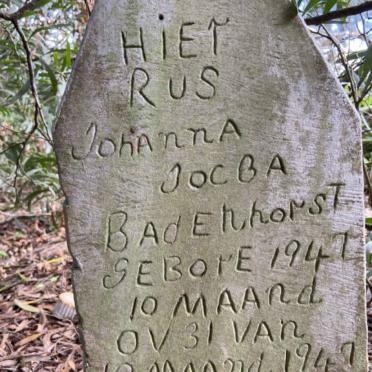 HIER
RUS
JOhAnnA
JOCBA
BADENhORST
GEBORE 1947
10 MAAnd
OV 31 VAn
10 MAAnd 1947